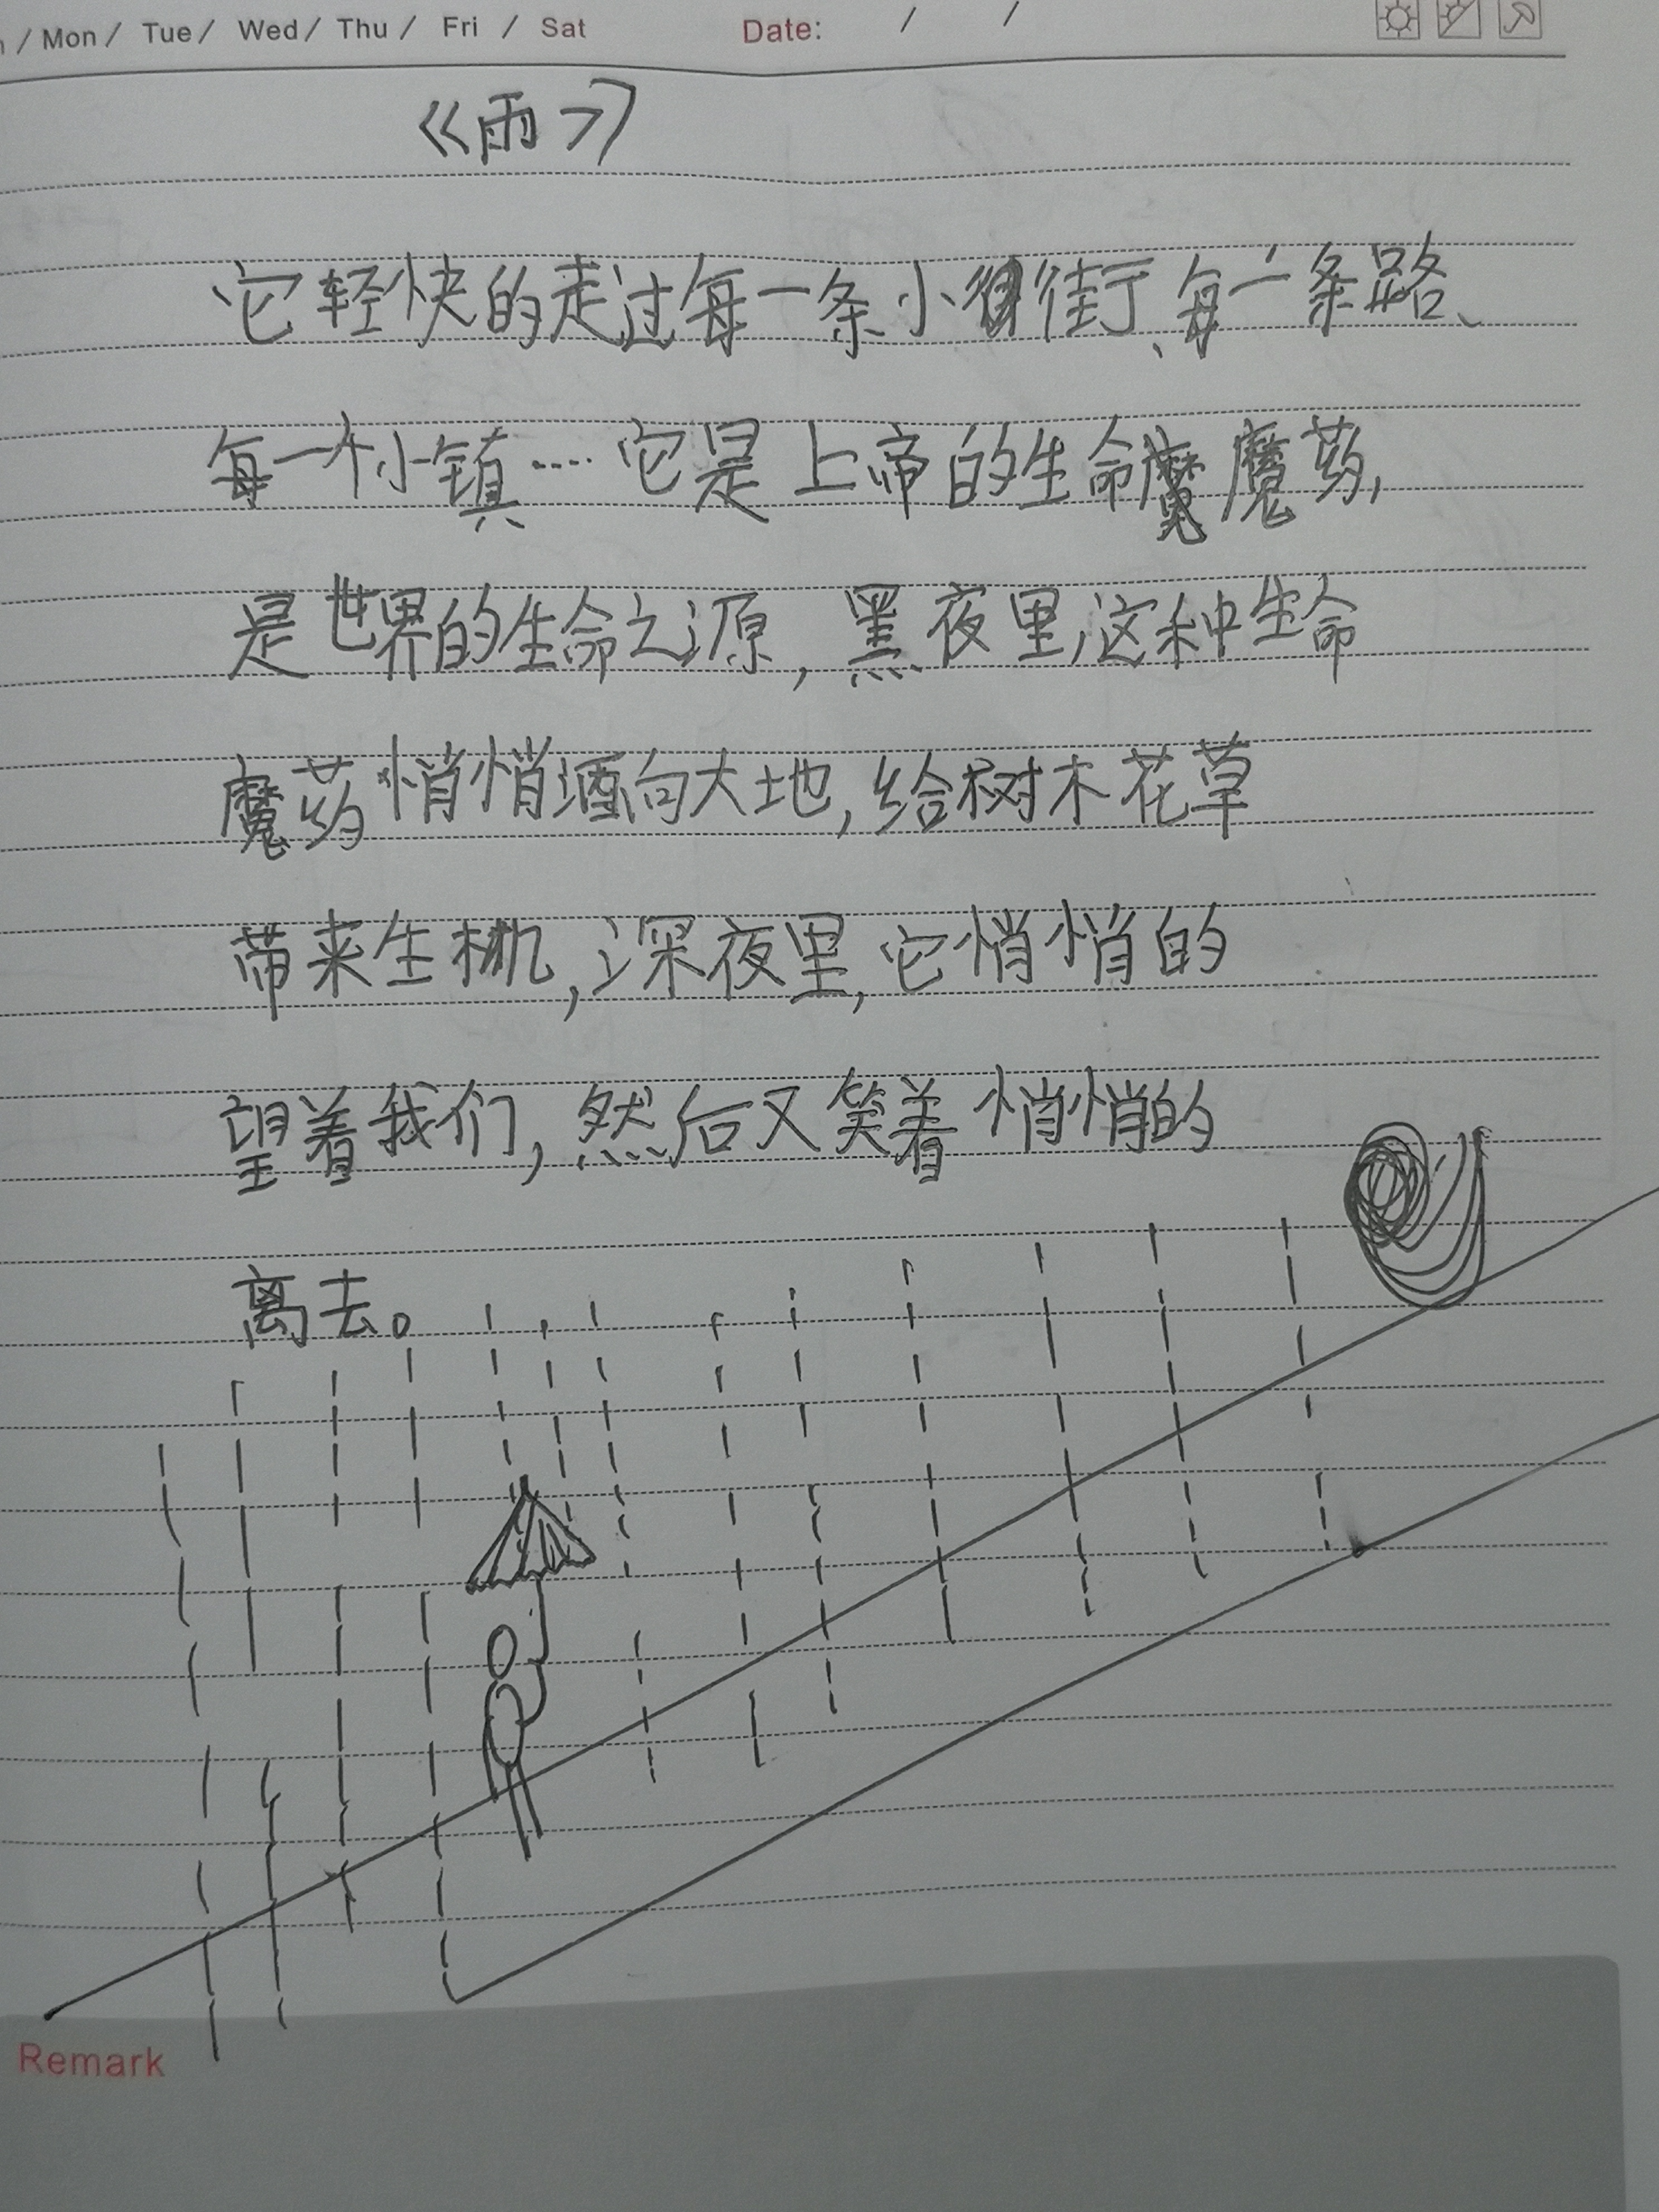 / Mon / Tue / Wed / Thu / Fri / Sat Date: / /
《雨》
它轻快的走过每一条小街、每一条路、
每一个小镇……它是上帝的生命魔药,
是世界的生命之源,黑夜里,这种生命
魔药悄悄洒向大地,给树木花草
带来生机,深夜里,它悄悄的
望着我们,然后又笑着悄悄的
离去。
Remark